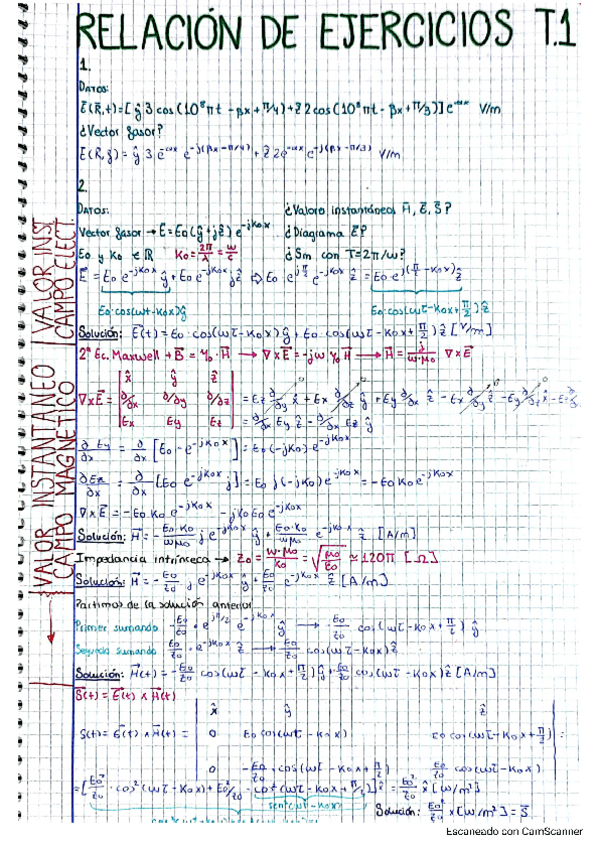 RELACIÓN DE EJERCICIOS T.1
1.
DATOS:
Ē(R̄,t)=[ŷ 3 cos(10⁸πt - βx + π/4)+ẑ 2 cos(10⁸πt - βx + π/3)] e^-αx V/m
¿Vector fasor?
E(R,f) = ŷ 3 e^-αx e^-j(βx - π/4) + ẑ 2e^-αx e^-j(βx - π/3) V/m
2.
DATOS: ¿Valores instantáneos H̄, Ē, S̄?
Vector fasor → Ē = E₀(ŷ+jẑ) e^-jK₀x ¿Diagrama Ē?
E₀ y K₀ ∈ ℝ K₀ = 2π/λ = ω/c ¿Sm con T=2π/ω?
Ē = E₀ e^-jK₀x ŷ + E₀ e^-jK₀x jẑ ⇨ E₀ e^jπ/2 e^-jK₀x ẑ = E₀ e^j(π/2 - K₀x) ẑ
E₀·cos(ωt-K₀x)ŷ E₀·cos(ωt-K₀x+π/2)ẑ
Solución: Ē(t) = E₀·cos(ωt-K₀x)ŷ + E₀ cos(ωt-K₀x+π/2)ẑ [V/m]
2ª Ec. Maxwell → B̄ = μ₀·H̄ → ∇×Ē = -jω μ₀ H̄ → H̄ = j/(ω·μ₀) ∇×Ē
VALOR INST. CAMPO ELECT.
VALOR INSTANTANEO CAMPO MAGNÉTICO
x̂ ŷ ẑ
∇×Ē = ∂/∂x ∂/∂y ∂/∂z
Ex Ey Ez
= ∂/∂x Ey ẑ - ∂/∂x Ez ŷ
∂Ey/∂x = ∂/∂x [E₀·e^-jK₀x] = E₀(-jK₀)·e^-jK₀x
∂Ez/∂x = ∂/∂x [E₀ e^-jK₀x j] = E₀ j(-jK₀) e^-jK₀x
∇×Ē = -E₀ K₀ e^-jK₀x - jK₀ E₀ e^-jK₀x
Solución: H̄ = - E₀·K₀/ωμ₀ j e^-jK₀x ŷ + E₀·K₀/ωμ₀ e^-jK₀x ẑ [A/m]
Impedancia intrínseca → Z₀ = ω·μ₀/K₀ = √(μ₀/ε₀) ≃ 120π [Ω]
Solución: H̄ = - E₀/Z₀ j e^-jK₀x ŷ + E₀/Z₀ e^-jK₀x ẑ [A/m]
Partimos de la solución anterior
Primer sumando - E₀/Z₀ · e^jπ/2 e^-jK₀x ŷ → - E₀/Z₀ cos(ωt-K₀x+π/2) ŷ
Segundo sumando E₀/Z₀ · e^-jK₀x ẑ → E₀/Z₀ cos(ωt-K₀x)ẑ
Solución: H̄(t) = - E₀/Z₀ cos(ωt - K₀x + π/2)ŷ + E₀/Z₀ cos(ωt-K₀x)ẑ [A/m]
S̄(t) = Ē(t) × H̄(t)
x̂ ŷ ẑ
S(t) = Ē(t) × H̄(t) = 0 E₀ cos(ωt-K₀x) E₀ cos(ωt-K₀x+π/2) =
0 - E₀/Z₀ · cos(ωt-K₀x+π/2) E₀/Z₀ cos(ωt-K₀x)
= [E₀²/Z₀ · cos²(ωt-K₀x) + E₀²/Z₀ · cos²(ωt-K₀x+π/2)] x̂ = E₀²/Z₀ x̂ [W/m²]
sen²(ωt-K₀x)
Solución: E₀²/Z₀ x [W/m²] = S̄
Escaneado con CamScanner